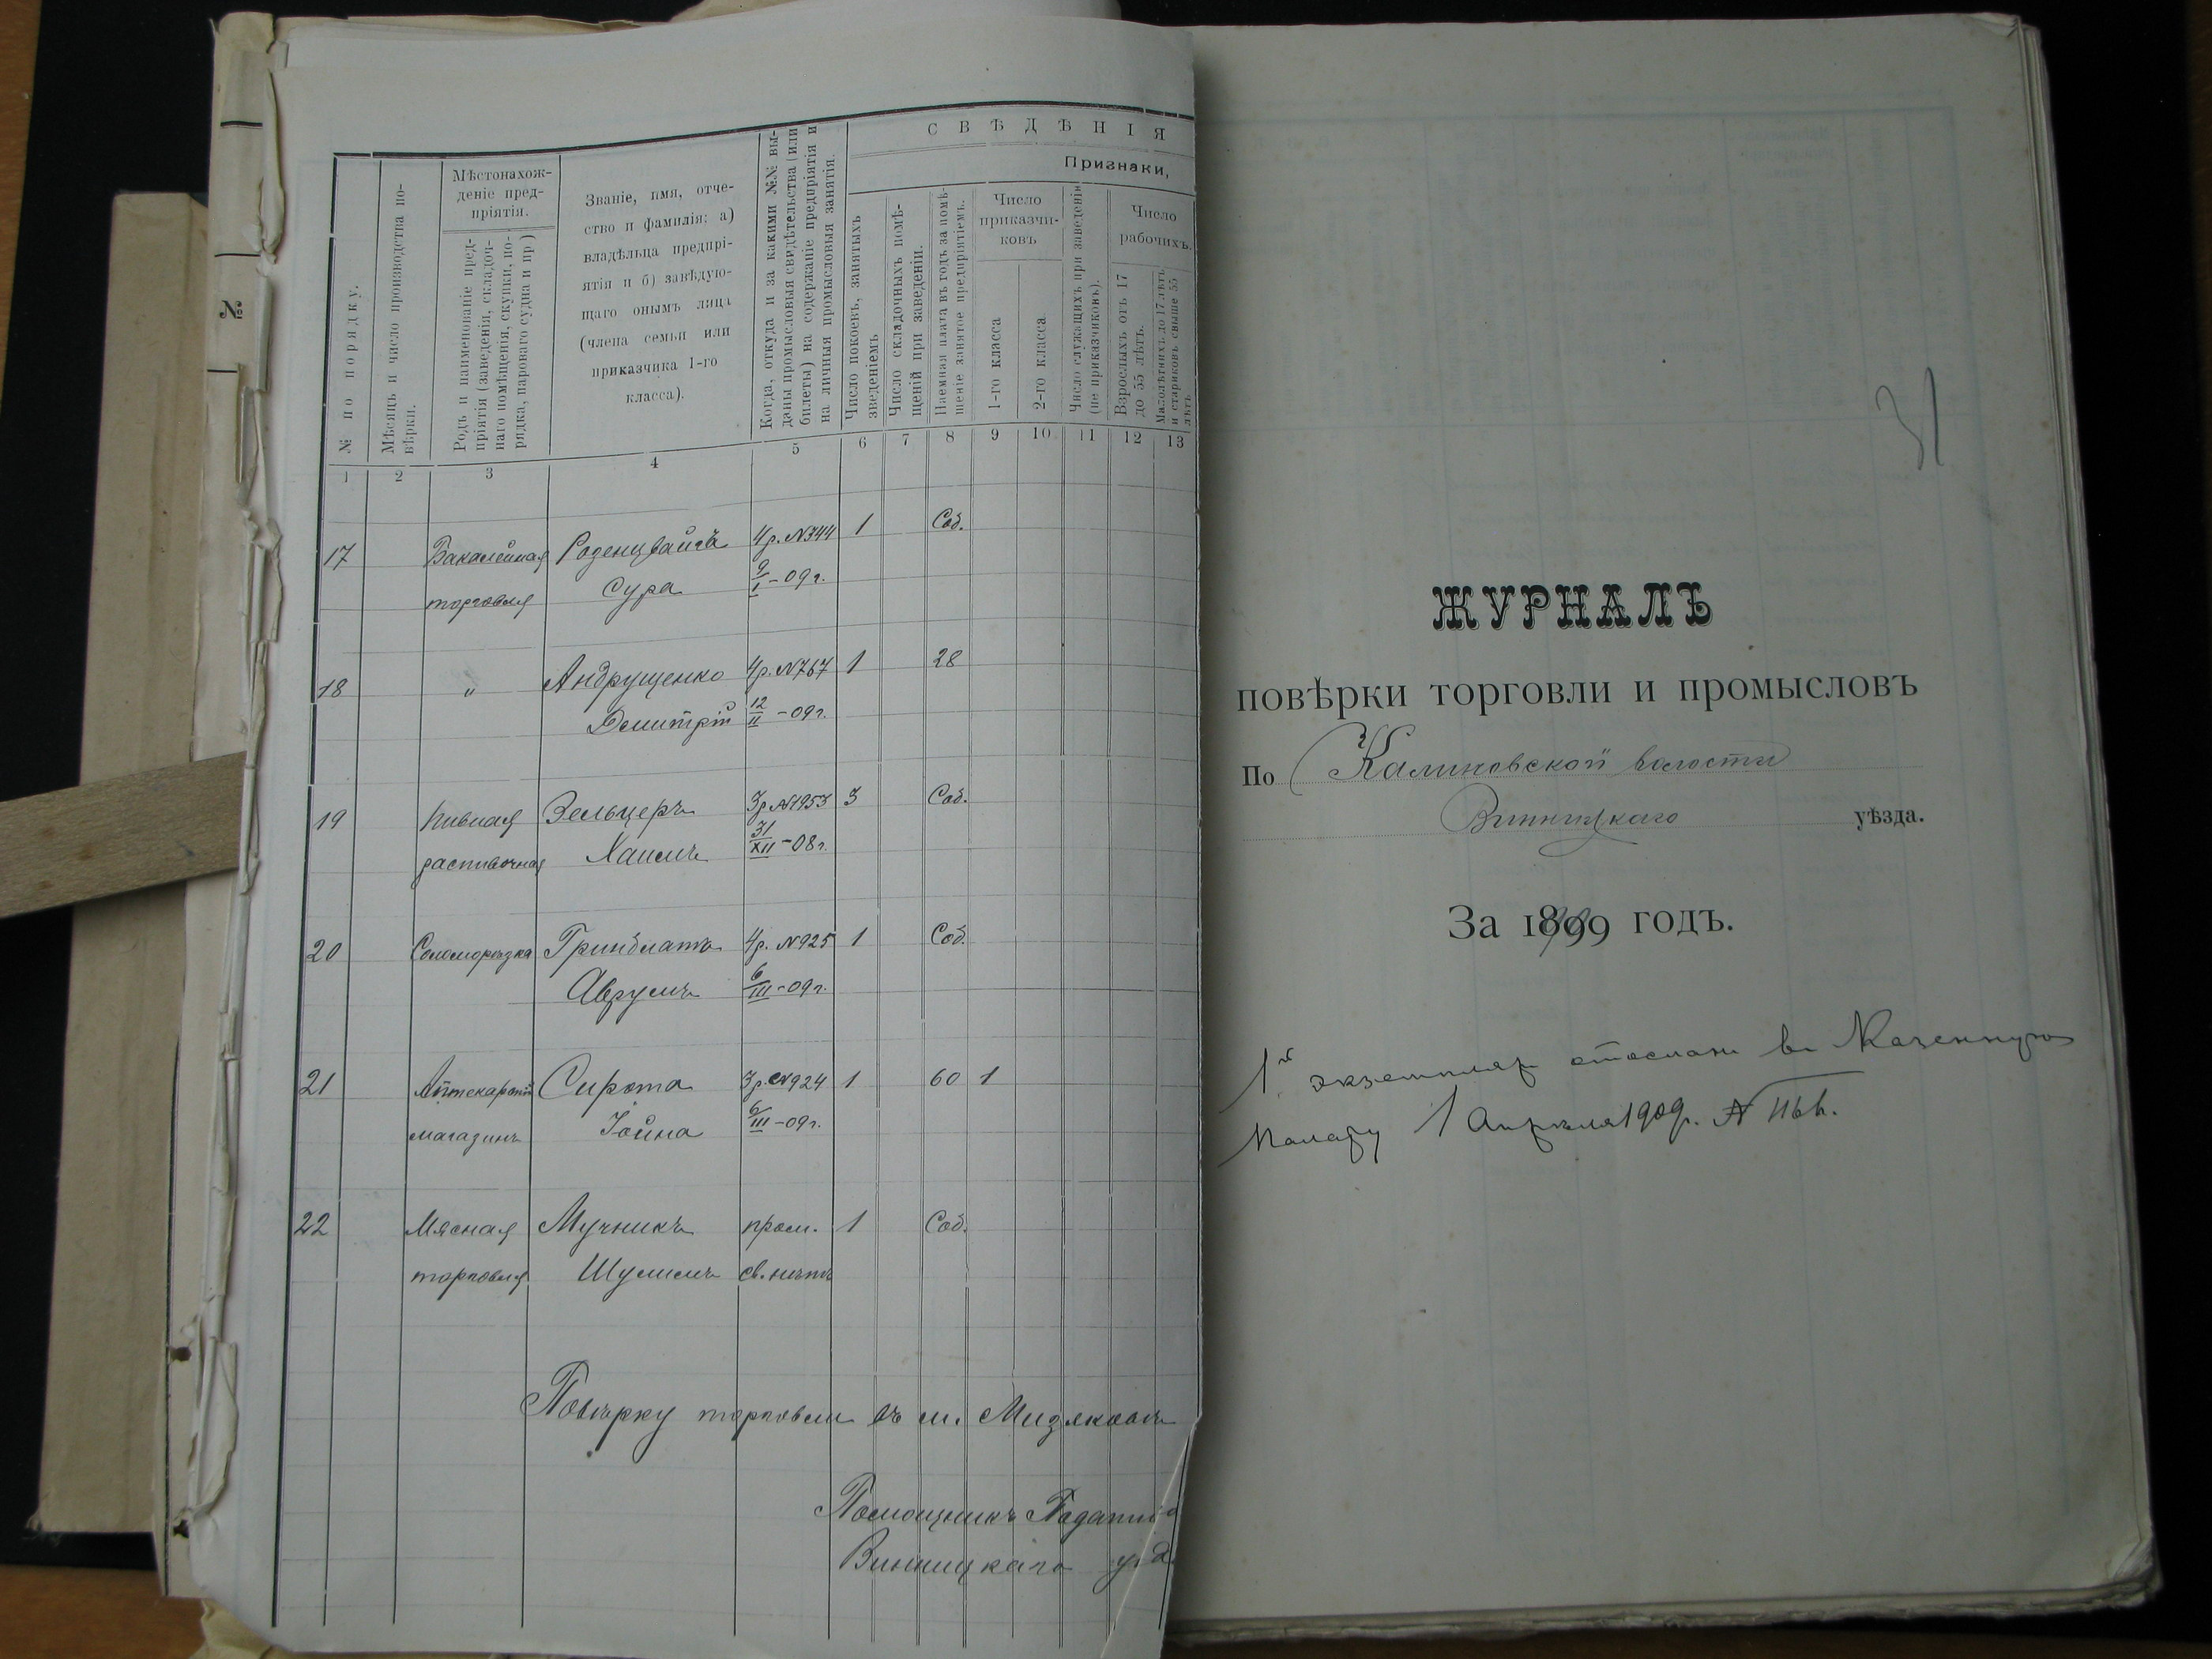 №
СВѢДѢНІЯ
Признаки,
№ по порядку.
Мѣсяцъ и число производства по-
вѣрки.
Мѣстонахож-
деніе пред-
пріятія.
Родъ и наименованіе пред-
пріятія (заведенія, складоч-
наго помѣщенія, скупки, по-
рядка, парового судна и пр )
Званіе, имя, отче-
ство и фамилія: а)
владѣльца предпрі-
ятія и б) завѣдую-
щаго онымъ лица
(члена семьи или
приказчика 1-го
класса).
Когда, откуда и за какими №№ вы-
даны промысловыя свидѣтельства (или
билеты) на содержаніе предпріятія и
на личныя промысловыя занятія.
Число покоевъ, занятыхъ
зведеніемъ
Число складочныхъ помѣ-
щеній при заведеніи.
Наемная плата въ годъ за помѣ-
щеніе занятое предпріятіемъ.
Число
приказчи-
ковъ
1-го класса
2-го класса
Число служащихъ при заведеніи
(не приказчиковъ).
Число
рабочихъ.
Взрослыхъ отъ 17
до 55 лѣтъ.
Малолѣтнихъ до 17 лѣтъ
и стариковъ свыше 55
лѣтъ
1 2 3 4 5 6 7 8 9 10 11 12 13
17 Бакалейная Розенцвайгъ 4 р. №344 1 Соб.
торговля Сура 9/I - 09 г.
18 " Андрущенко 4 р. №767 1 28
Дмитрій 12/II - 09 г.
19 Пивная Зельцеръ 3 р №1953 3 Соб.
распивочная Хаимъ 31/XII - 08 г.
20 Соломорѣзка Гринблатъ 4 р. №925 1 Соб.
Аврумъ 6/III - 09 г.
21 Аптекарскій Сирота 3 р. №924 1 60 1
магазинъ Іойна 6/III - 09 г.
22 Мясная Мучникъ пром. 1 Соб.
торговля Шулимъ св. нѣтъ
Повѣрку торговли въ м. Мизяковѣ
Помощникъ Податн
Винницкаго у. д.
31
ЖУРНАЛЪ
повѣрки торговли и промысловъ
По Калиновской волости
Винницкаго уѣзда.
За 1899 годъ.
1й экземпляръ отосланъ въ Казенную
Палату 1 Апрѣля 1909 г. №